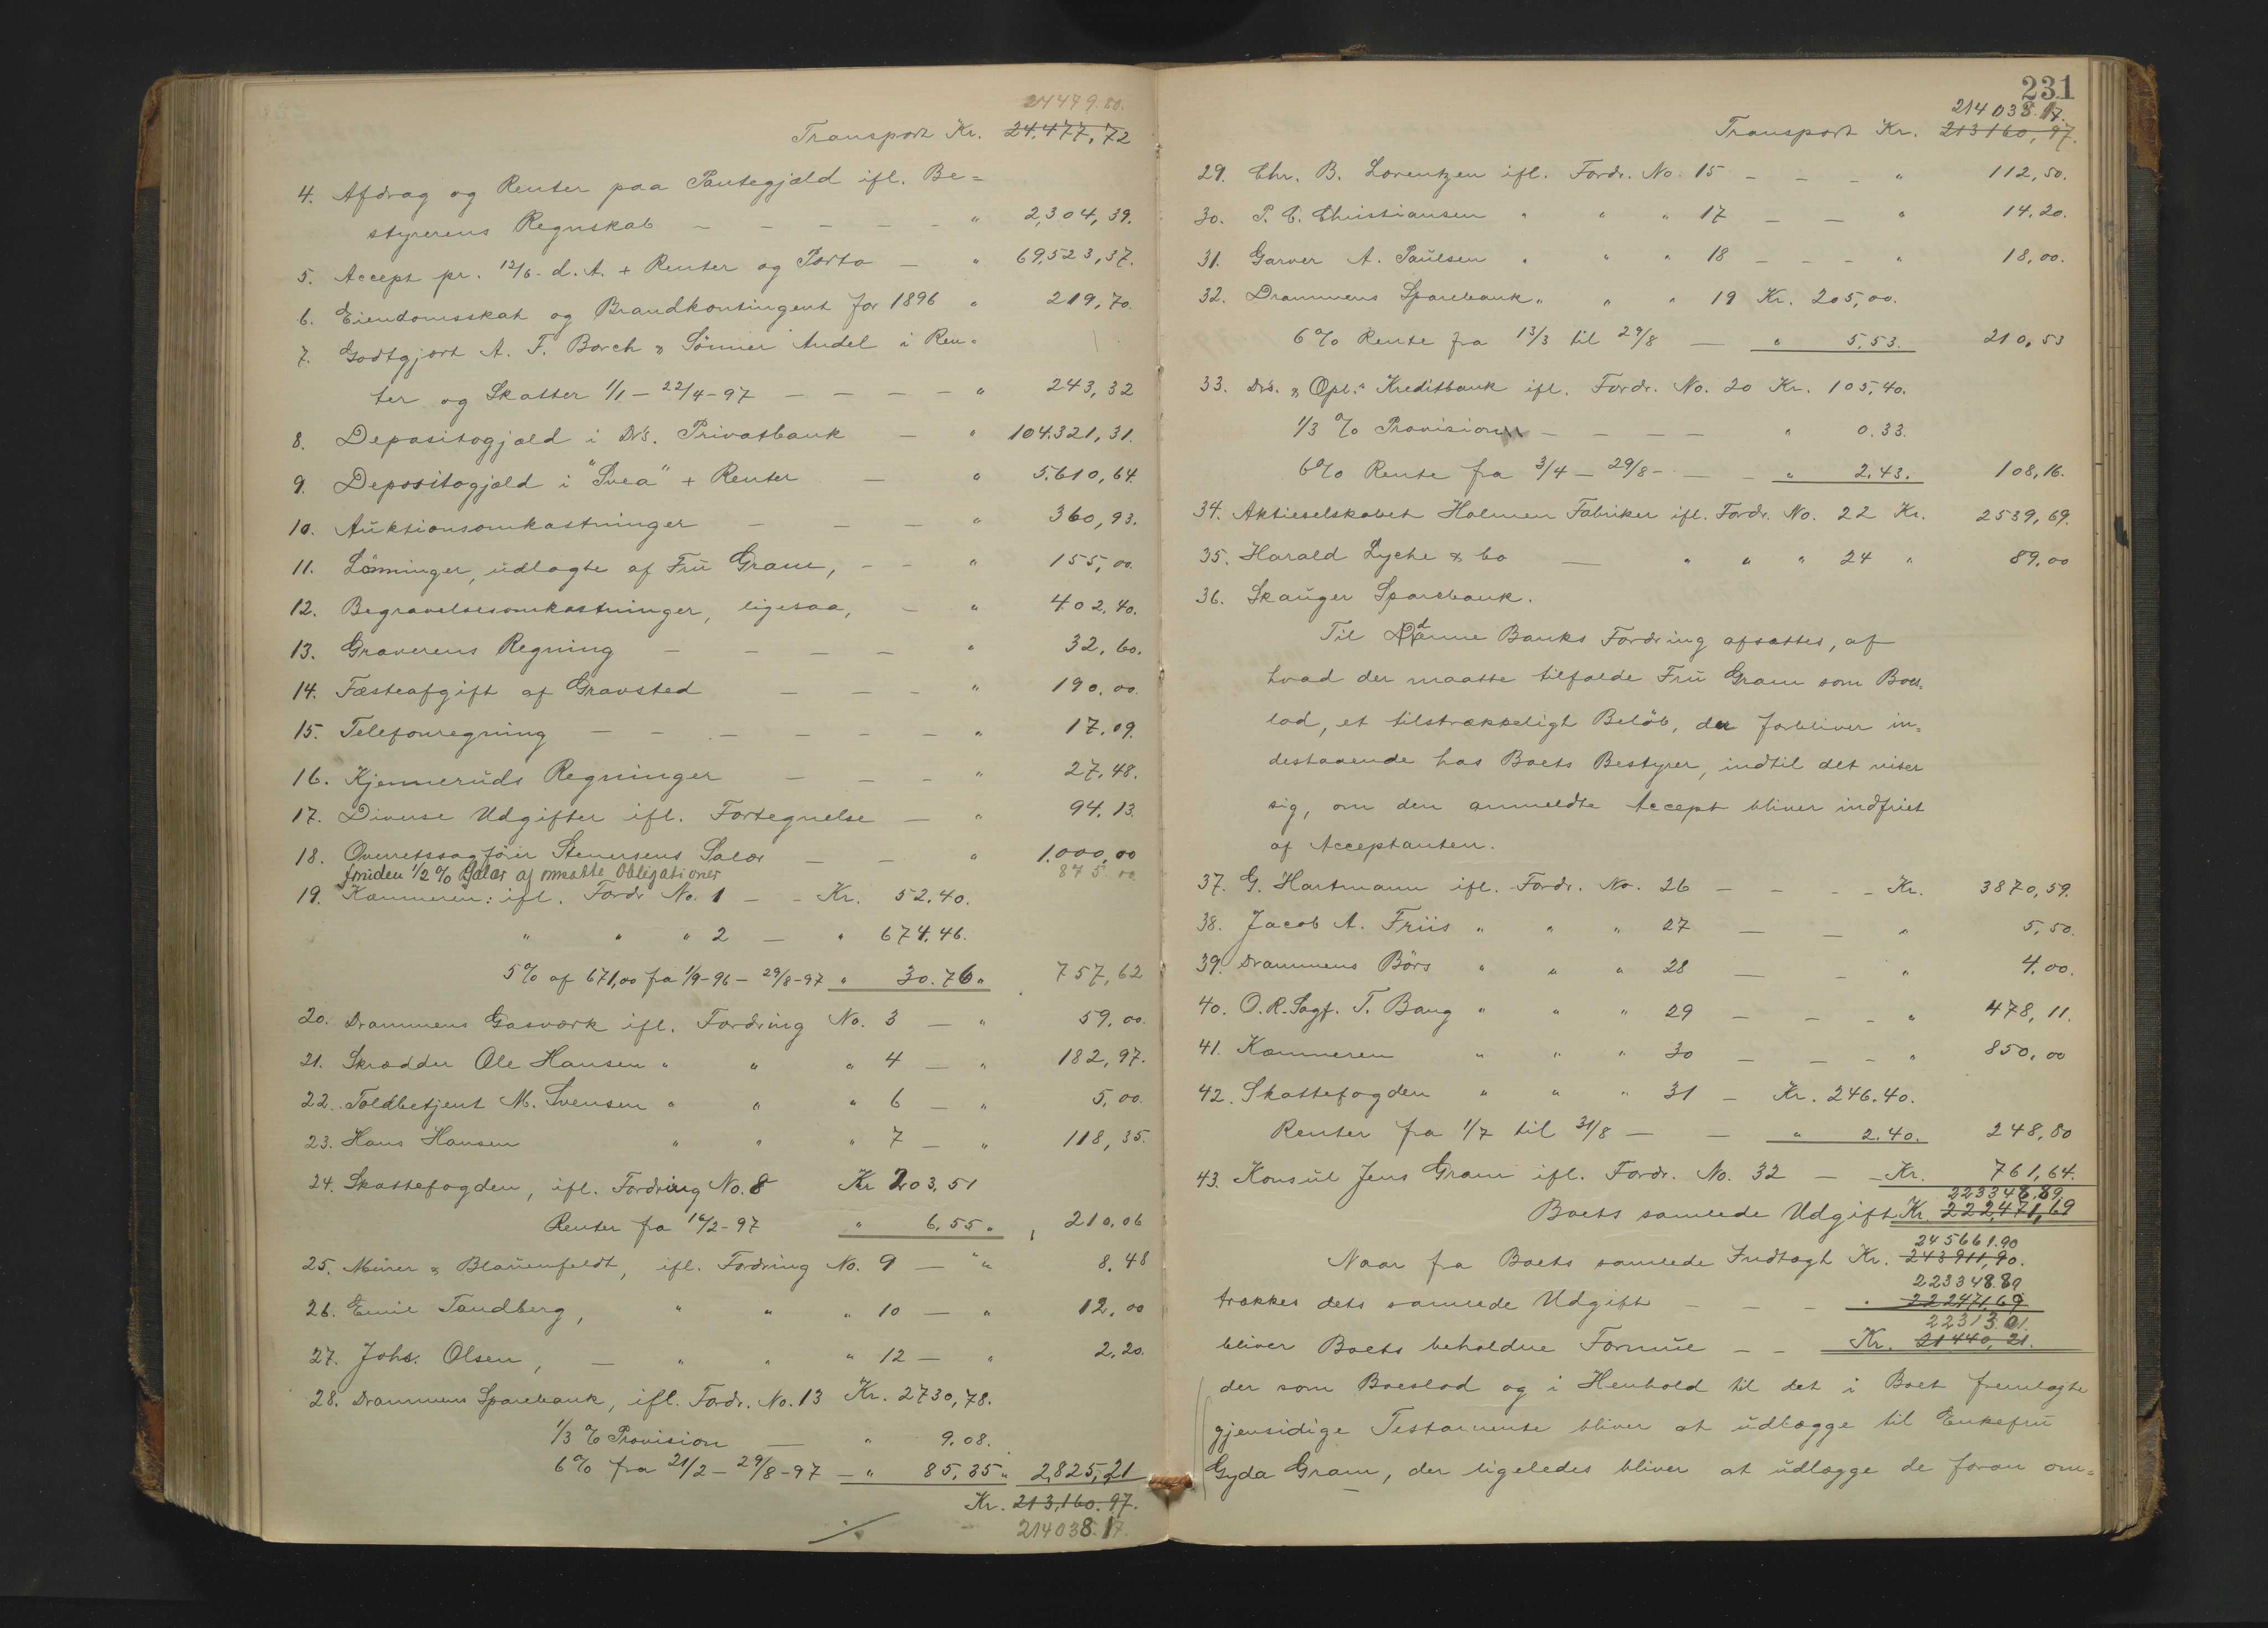 24479.80.
Transport Kr. 24.477,72
4. Afdrag og Renter paa Pantegjæld ifl. Be=
styrerens Regnskab – – – – – " 2,304,39.
5. Accept pr. 12/6 - d.A. + Renter og Porto – " 69,523,37.
6. Eiendomsskat og Brandkontingent for 1896 " 219,70.
7. Godtgjort A. F. Borch & Sönner Andel i Ren=
ter og Skatter 1/1 – 22/4-97 – – – – " 243,32
8. Depositogjæld i Drs. Privatbank – " 104.321,31.
9. Depositogjæld i "Svea" + Renter – " 5.610,64.
10. Auktionsomkostninger – – – " 360,93.
11. Lönninger, udlagte af Fru Gram, – – " 155,00.
12. Begravelsesomkostninger, ligesaa, – " 402.40.
13. Graverens Regning – – – – " 32,60.
14. Fæsteafgift af Gravsted – – – " 190,00.
15. Telefonregning – – – – – – " 17,09.
16. Kjenneruds Regninger – – – " 27,48.
17. Diverse Udgifter ifl. Fortegnelse – " 94,13.
18. Overretssagförer Stenersens Salær – – " 1.000,00
foruden 1/2 % Salær af omsatte Obligationer 875.00
19. Kæmneren: ifl. Fordr No. 1 – – Kr. 52,40.
" " " 2 – " 674,46.
5% af 671,00 fra 1/9-96 – 29/8-97 " 30.76 " 757,62
20. Drammens Gasværk ifl. Fordring No. 3 – " 59,00.
21. Skrædder Ole Hansen " " " 4 – " 182,97.
22. Toldbetjent M. Svensen " " " 6 – " 5,00.
23. Hans Hansen " " " 7 – " 118,35.
24. Skattefogden, ifl. Fordring No. 8 Kr 203,51
Renter fra 16/2-97 " 6,55 " 210,06
25. Meier & Blauenfeldt, ifl. Fordring No. 9 – " 8,48
26. Emil Tandberg, " " " 10 – " 12,00
27. Johs. Olsen, – " " " 12 – " 2,20.
28. Drammens Sparebank, ifl. Fordr. No. 13 Kr. 2730,78.
1/3 % Provision – " 9.08.
6% fra 21/2 – 29/8-97 – " 85,35 " 2,825,21
Kr. 213,160.97.
214038.17.
231
214038.17.
Transport Kr. 213160,97.
29. Chr. B. Lorentzen ifl. Fordr. No. 15 – – – " 112,50.
30. P. C. Christiansen " " " 17 – – " 14,20.
31. Garver A. Paulsen " " " 18 – – – " 18,00.
32. Drammens Sparebank " " " 19 Kr. 205,00.
6% Rente fra 13/3 til 29/8 – " 5,53. 210,53
33. Drs. & Opl." Kreditbank ifl. Fordr. No. 20 Kr. 105,40.
1/3 % Provision – – – – " 0.33.
6% Rente fra 3/4 – 29/8 – – – " 2,43. 108,16.
34. Aktieselskabet Holmen Fabriker ifl. Fordr. No. 22 Kr. 2539,69.
35. Harald Lyche & Co – " " " 24 " 89,00
36. Skauger Sparebank.
Til denne Banks Fordring afsættes, af
hvad der maatte tilfalde Fru Gram som Boes=
lod, et tilstrækkeligt Belöb, der forbliver in=
destaaende hos Boets Bestyrer, indtil det viser
sig, om den anmeldte Accept bliver indfriet
af Acceptanten.
37. G. Hartmann ifl. Fordr. No. 26 – – – – Kr. 3870,59.
38. Jacob A. Friis " " " 27 – – " 5,50.
39. Drammens Börs " " " 28 – – " 4,00.
40. O.R.Sagf. T. Bang " " " 29 – – – " 478,11.
41. Kæmneren " " " 30 – – – " 850,00
42. Skattefogden " " " 31 – Kr. 246.40.
Renter fra 1/7 til 31/8 – – " 2.40. 248,80
43. Konsul Jens Gram ifl. Fordr. No. 32 – – Kr. 761,64.
223348,89.
Boets samlede Udgift Kr. 222,471,69
245661.90
Naar fra Boets samlede Indtægt Kr. 243911,90.
223348.89
trækkes dets samlede Udgift – – – " 222471,69
22313.01.
bliver Boets beholdne Formue – – Kr. 21440,21.
der som Boeslod og i Henhold til det i Boet fremlagte
gjensidige Testamente bliver at udlægge til Enkefru
Gyda Gram, der ligeledes bliver at udlægge de foran om=